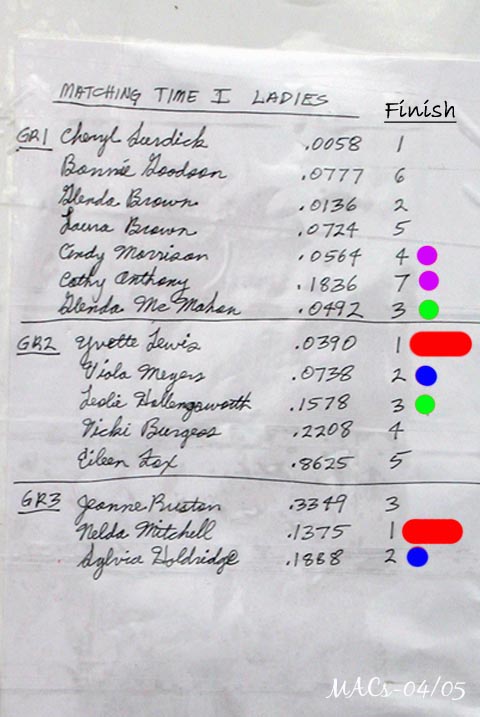 MATCHING TIME I LADIES
Finish
GR1 Cheryl Surdick .0058 1
Bonnie Goodson .0777 6
Glenda Brown .0136 2
Laura Brown .0724 5
Cindy Morrison .0564 4
Cathy Anthony .1836 7
Glenda McMahon .0492 3
GR2 Yvette Lewis .0390 1
Viola Meyers .0738 2
Leslie Hollengsworth .1578 3
Vicki Burgess .2208 4
Eileen Fox .8625 5
GR3 Jeanne Ruston .3349 3
Nelda Mitchell .1375 1
Sylvia Holdridge .1888 2
MACs-04/05